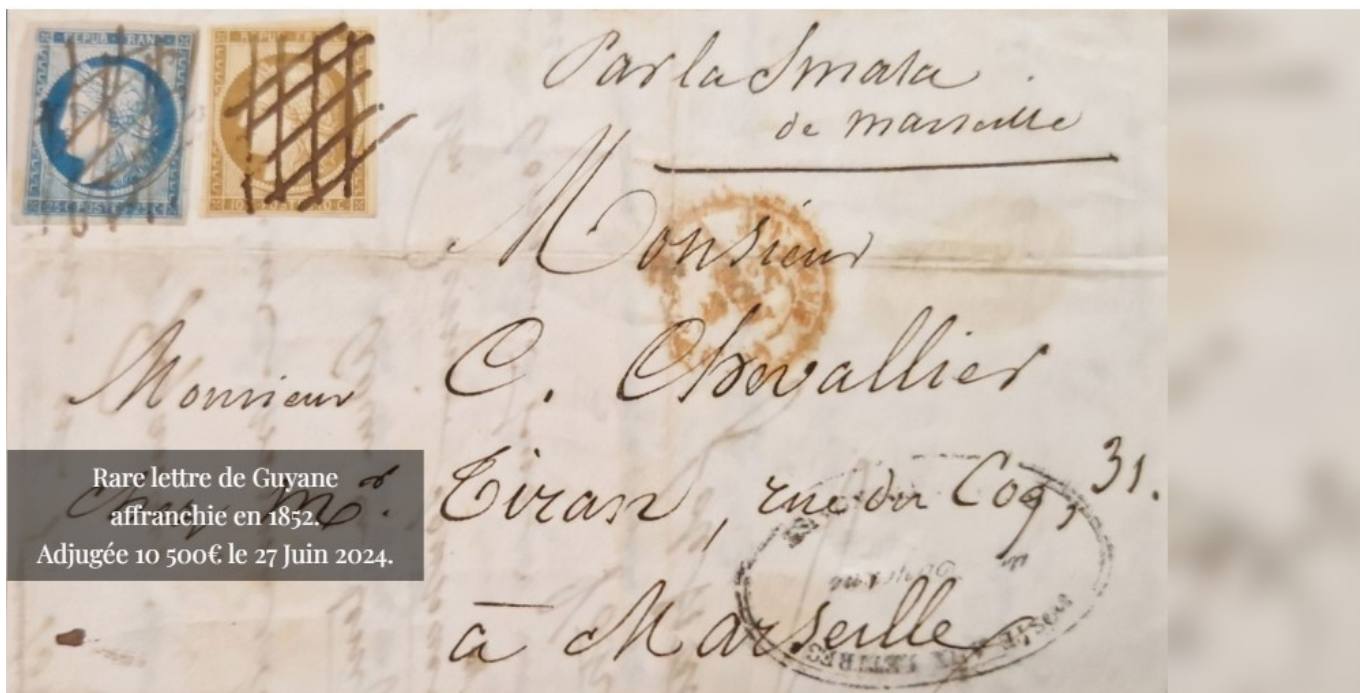 REPUB FRAN
25 C POSTE 25 C
10 C POSTE 10 C
Par la Smala
de Marseille
Monsieur
Monsieur C. Chevallier
chez Mr. Tiran, rue du Coq, 31.
à Marseille
POSTE AUX LETTRES
Rare lettre de Guyane
affranchie en 1852.
Adjugée 10 500€ le 27 Juin 2024.